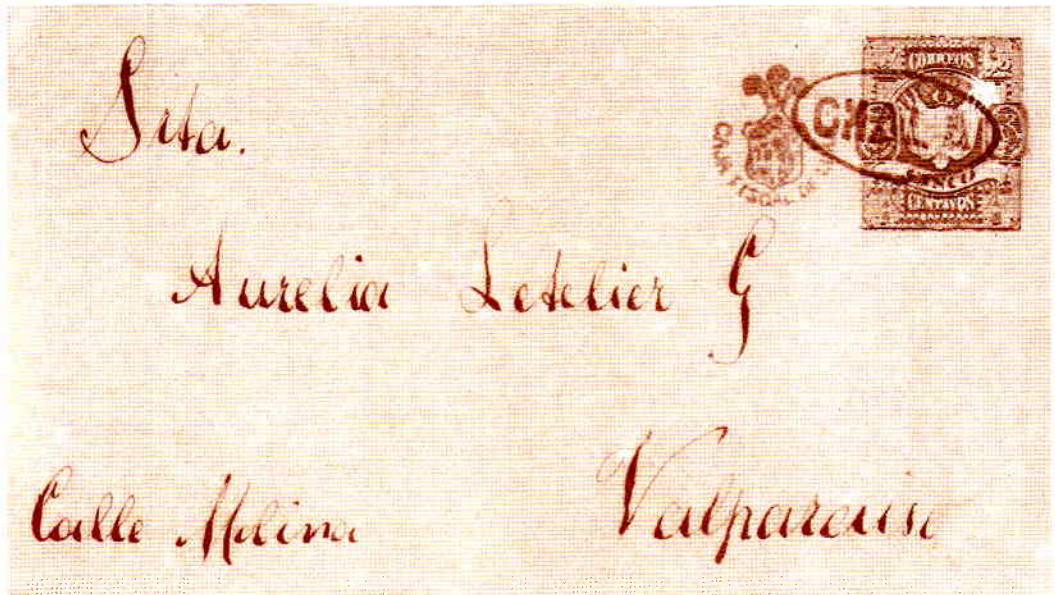 Srta.
CORREOS
CINCO
CENTAVOS
CAJA FISCAL DE
Aurelia Letelier G
Calle Molina
Valparaiso